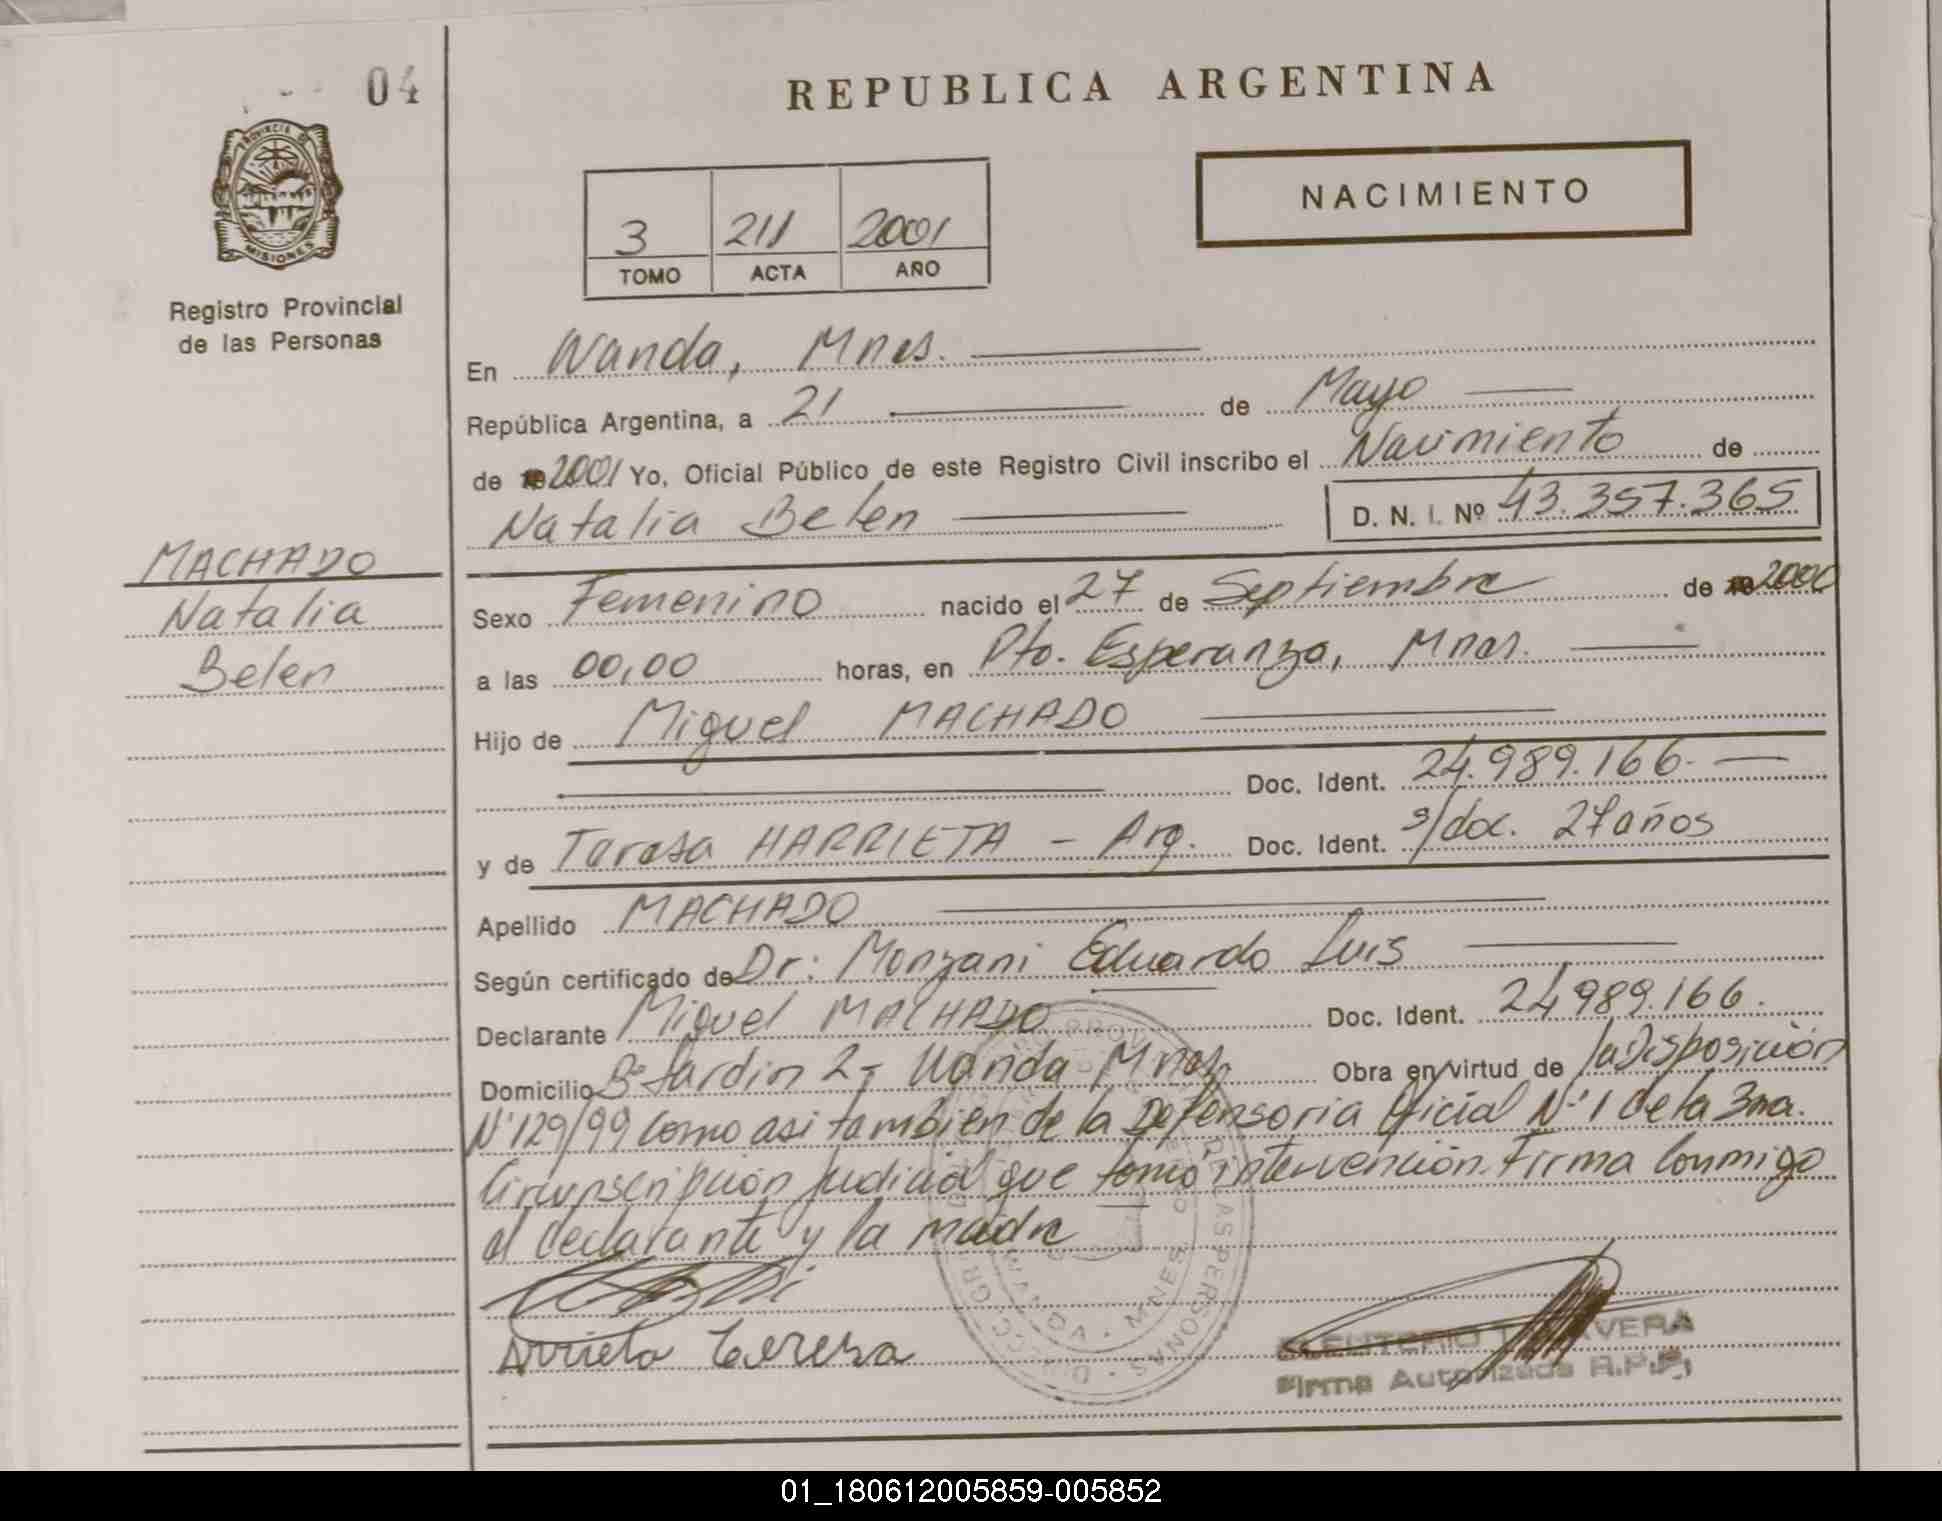 04
REPUBLICA ARGENTINA
PROVINCIA DE
MISIONES
NACIMIENTO
3 211 2001
TOMO ACTA AÑO
Registro Provincial
de las Personas
En Wanda, Mnes.
República Argentina, a 21 de Mayo
de 2001 Yo, Oficial Público de este Registro Civil inscribo el Nacimiento de
Natalia Belen D. N. I. Nº 43.357.365
MACHADO
Natalia
Belen
Sexo Femenino nacido el 27 de Septiembre de 2000
a las 00,00 horas, en Pto. Esperanza, Mnes.
Hijo de Miguel MACHADO
Doc. Ident. 24.989.166.
y de Teresa HARRIETA - Arg. Doc. Ident. s/doc. 27 años
Apellido MACHADO
Según certificado de Dr: Monzani Eduardo Luis
Declarante Miguel MACHADO Doc. Ident. 24989.166.
Domicilio Bº Jardin 2 - Wanda Mnes. Obra en virtud de la Disposición
Nº 129/99 como asi tambien de la Defensoria Oficial Nº 1 de la 3ra.
Circunscripción judicial que tomo intervención. Firma conmigo
el declarante y la madre
Arrieta Teresa
WANDA · MNES
DE LAS PERSONAS
Firma Autorizada R.P.P.
01_180612005859-005852